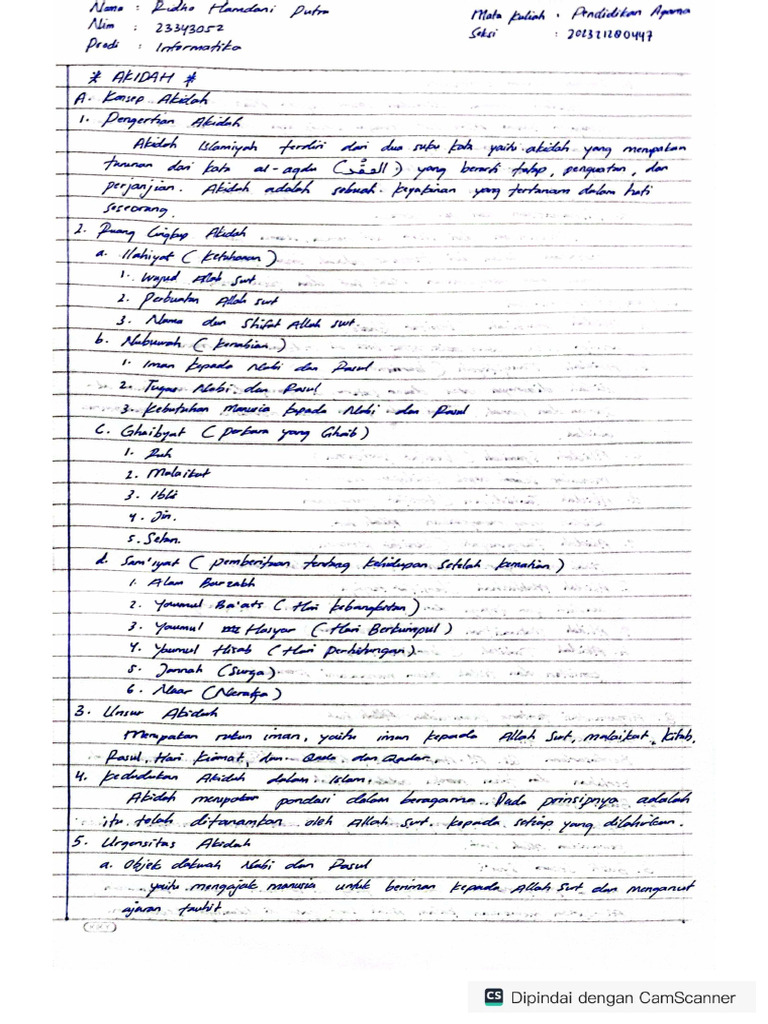 Nama : Ridho Hamdani Putra
Mata kuliah : Pendidikan Agama
Nim : 23343052
Seksi : 202321280447
Prodi : Informatika
* AKIDAH *
A. Konsep Akidah
1. Pengertian Akidah
Akidah Islamiyah terdiri dari dua suku kata yaitu akidah yang merupakan
turunan dari kata al-aqdu (العَقْدُ) yang berarti tetap, penguatan, dan
perjanjian. Akidah adalah sebuah keyakinan yang tertanam dalam hati
seseorang.
2. Ruang Lingkup Akidah
a. Ilahiyat (Ketuhanan)
1. Wujud Allah Swt
2. Perbuatan Allah swt
3. Nama dan Shifat Allah swt.
b. Nubuwah (Kenabian)
1. Iman kepada Nabi dan Rasul
2. Tugas Nabi dan Rasul
3. Kebutuhan manusia kepada Nabi dan Rasul
C. Ghaibyat (perkara yang Ghaib)
1. Ruh
2. Malaikat
3. Iblis
4. Jin.
5. Setan.
d. Sam'iyat (pemberitaan tentang kehidupan setelah kematian)
1. Alam Barzakh
2. Youmul Ba'ats (Hari kebangkitan)
3. Youmul Hasyar (Hari Berkumpul)
4. Youmul Hisab (Hari Perhitungan).
5. Jannah (Surga).
6. Naar (Neraka)
3. Unsur Akidah
Merupakan rukun iman, yaitu iman kepada Allah Swt, malaikat, kitab,
Rasul, Hari Kiamat, dan Qada dan Qadar.
4. Kedudukan Akidah dalam Islam.
Akidah merupakan pondasi dalam beragama. Pada prinsipnya adalah
itu telah ditanamkan oleh Allah swt. kepada setiap yang dilahirkan.
5. Urgensitas Akidah
a. Objek dakwah Nabi dan Rasul
yaitu mengajak manusia untuk beriman kepada Allah Swt dan menganut
ajaran tauhit
CS Dipindai dengan CamScanner